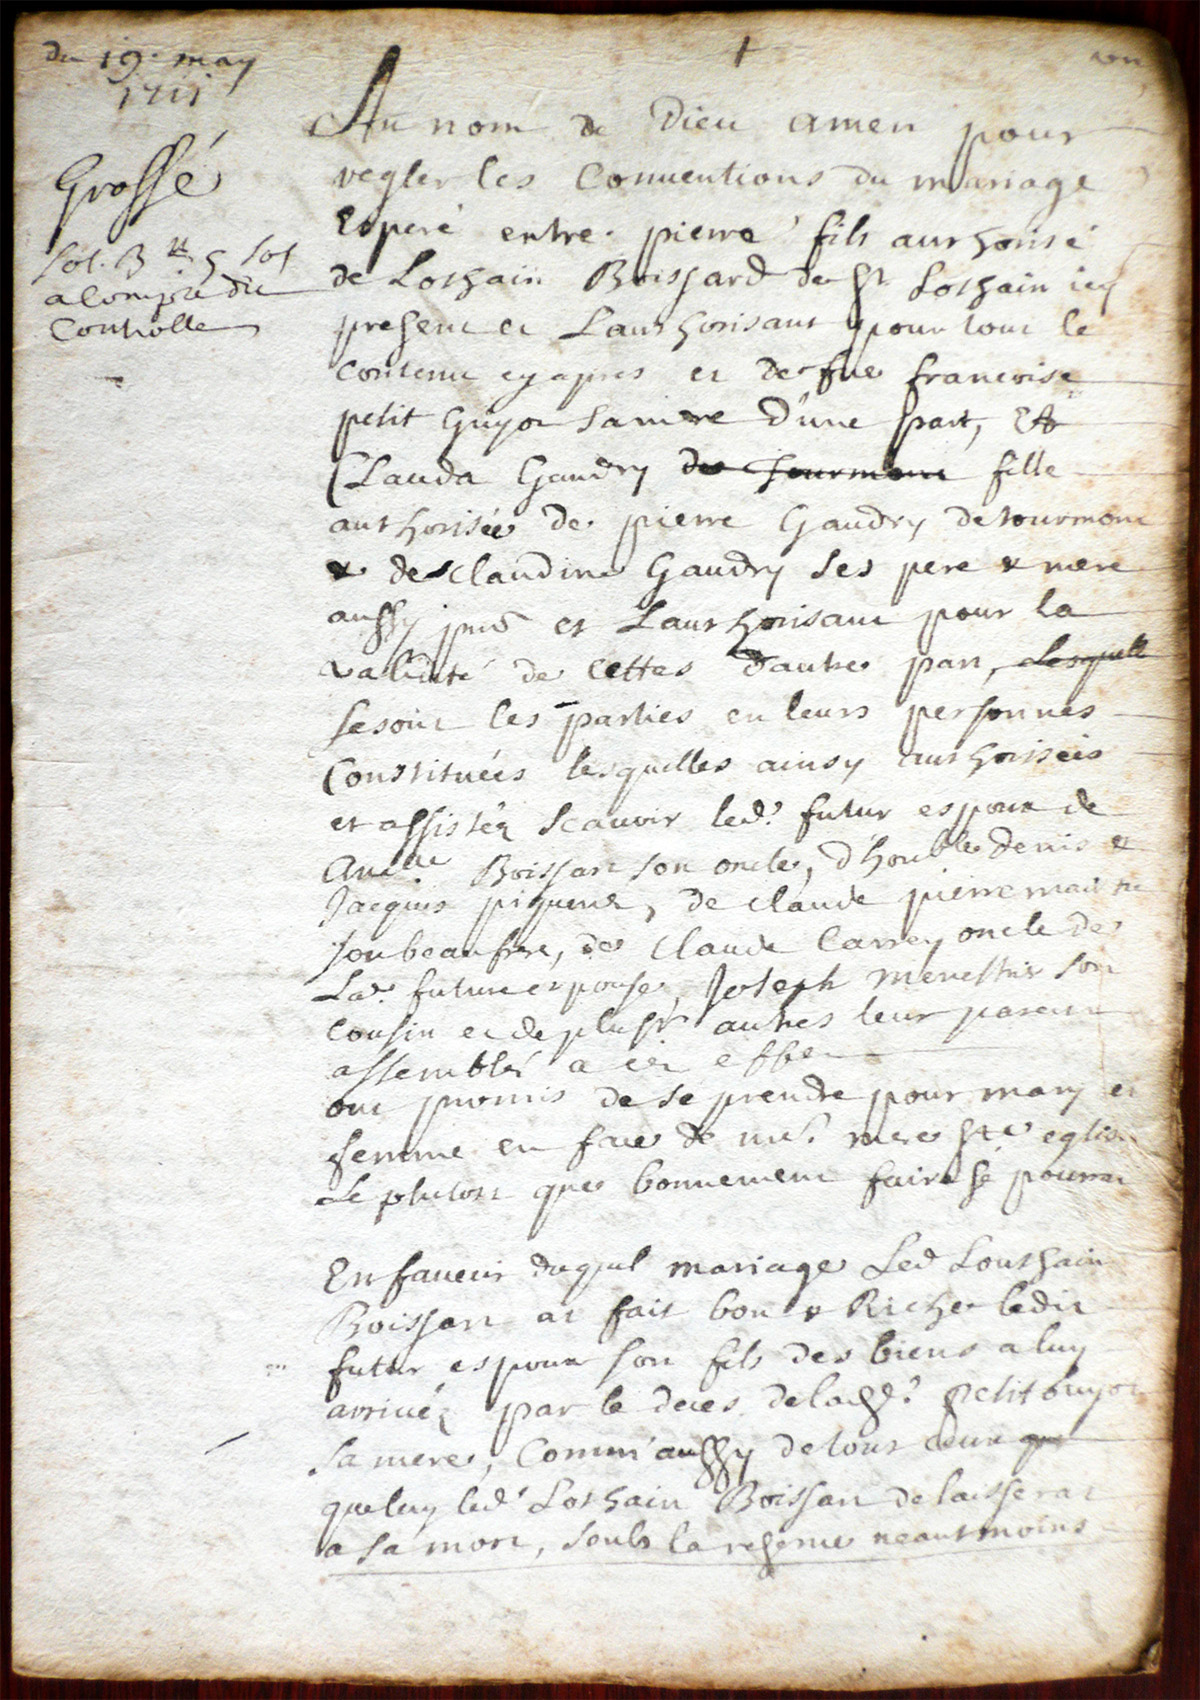 du 19. may
1711
Grossé
sol. 3 ₶ 5 sol
a compte du
Controlle
Au nom de Dieu amen pour
regler les Conuentions du mariage
Esperé entre pierre fils aurhorisé
de Lothain Boissard de St Lothain icy
present et Laurhorisant pour tout le
contenu cyapres et de fue francoise
petit Guyot sa mere d'une part, Et
Clauda Gaudry de Tourmont fille
aurhorisée de pierre Gaudry de tourmont
& de Claudine Gaudry ses pere & mere
aussy pnts et Laurhorisant pour la
validité de cettes d'autre part, Lesquell
se sont les parties en leurs personnes
Constituées lesquelles ainsy aurhorisées
et assistéz scauoir led. futur espoux de
Boissart son oncle, d'honble denis &
Jacques piquerez, de claude pierre maitre
son beaufrere, de Claude Carrey oncle de
Lad. future espouse, Joseph menestrier son
cousin et de plusrs autres leur parent
assemblés a cet effet
ont promis de se prendre pour mary et
femme en face de nre mere ste eglise
Le plutost que bonnement faire se pourrat
En faueur duquel mariage Led Louthain
Boissart at fait bon & Riche ledit
futur espoux son fils des biens a luy
arriuéz par le deces de lad. petit Guyot
sa mere, Comm'aussy de tout ceux que
que luy led. Lothain Boissart delaisserat
a sa mort, soubs la reserue neantmoins